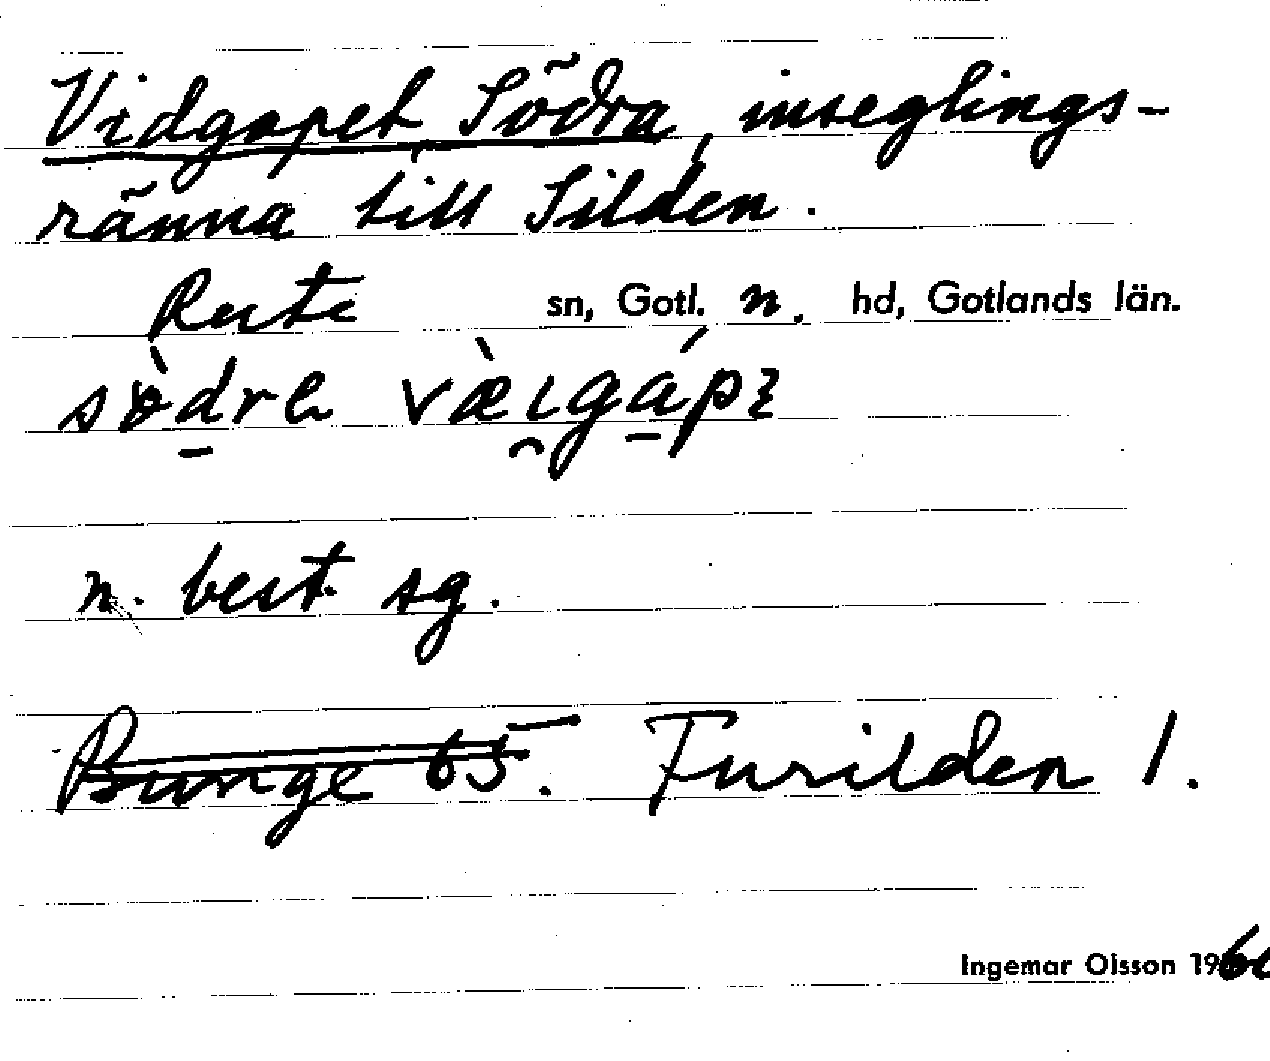 Vidgapet, Södra, inseglings-
ränna till Silden.
Rute sn, Gotl. n. hd, Gotlands län.
n. best. sg.
Bunge 65. Furilden 1.
Ingemar Olsson